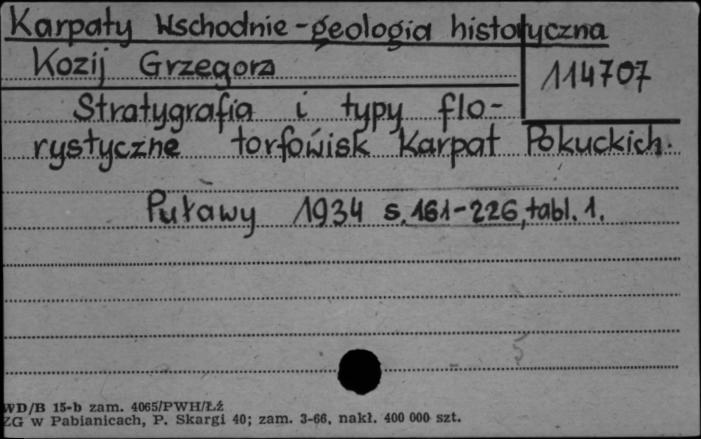 Karpaty Wschodnie - geologia historyczna
Kozij Grzegorz
114707
Stratygrafia i typy flo-
rystyczne torfowisk Karpat Pokuckich.
Puławy 1934 s. 161-226, tabl. 1.
5
WD/B 15-b zam. 4065/PWH/Łź
ZG w Pabianicach, P. Skargi 40; zam. 3-66, nakł. 400 000 szt.